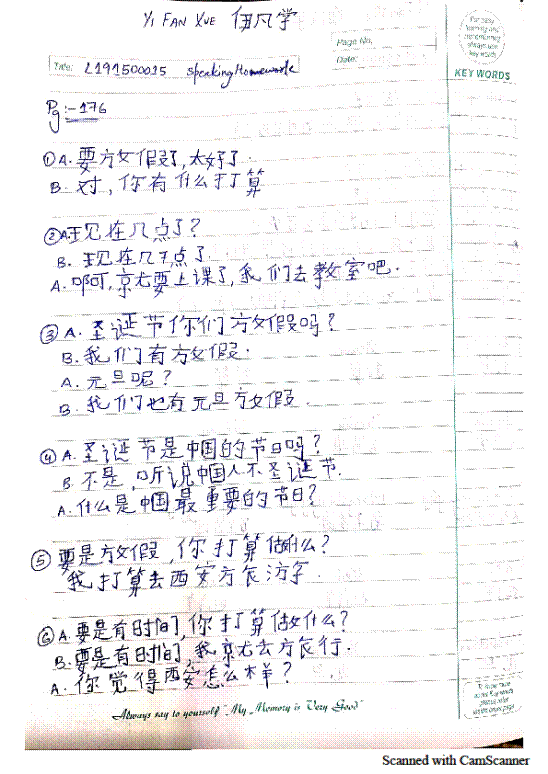 YI FAN XUE 伊凡学
For easy
learning and
remembering
always use
key words
Page No.
Date:
Title: L191500015 speaking Homework
KEY WORDS
Pg:-176
① A. 要放假了, 太好了.
B. 对, 你有什么打算
② A. 现在几点了?
B. 现在几点了
A. 啊, 就要上课了, 我们去教室吧.
③ A. 圣诞节你们放假吗?
B. 我们有放假.
A. 元旦呢?
B. 我们也有元旦放假.
④ A. 圣诞节是中国的节日吗?
B. 不是, 听说中国人不圣诞节.
A. 什么是中国最重要的节日?
⑤ 要是放假, 你打算做什么?
我打算去西安旅游.
⑥ A. 要是有时间, 你打算做什么?
B. 要是有时间, 我就去旅行.
A. 你觉得西安怎么样?
Always say to yourself "My Memory is Very Good"
Scanned with CamScanner